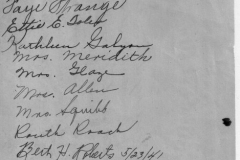 Faye Strange
Effie E. Isley
Kathleen Galyon
Mrs. Meridith
Mrs. Glaze
Mrs. Allen
Mrs Squibb
Routh Roach
Beth H. Roberts 5/23/41